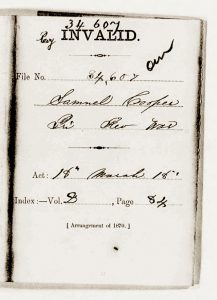 34 607
INVALID.
File No. 34,607
Samuel Cooper
Pri Rev War
Act: 18" March 18"
Index:—Vol. D, Page 84
[ Arrangement of 1870. ]